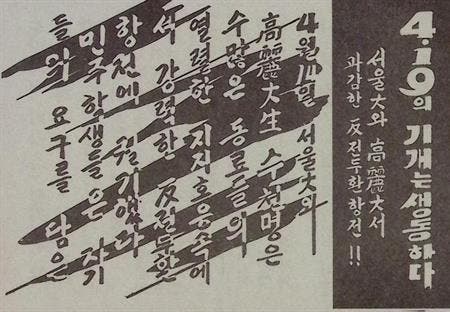 4.19의 기개는 생동하다
서울大와 高麗大서
과감한 反전두환항전 !!
4월 서울大와
高麗大生 수천명은
수많은 동료들의
열렬한 지지호응속에
강력한 反전두환
항전에 궐기했다
민주학생들은 자기
들의 요구를 담은